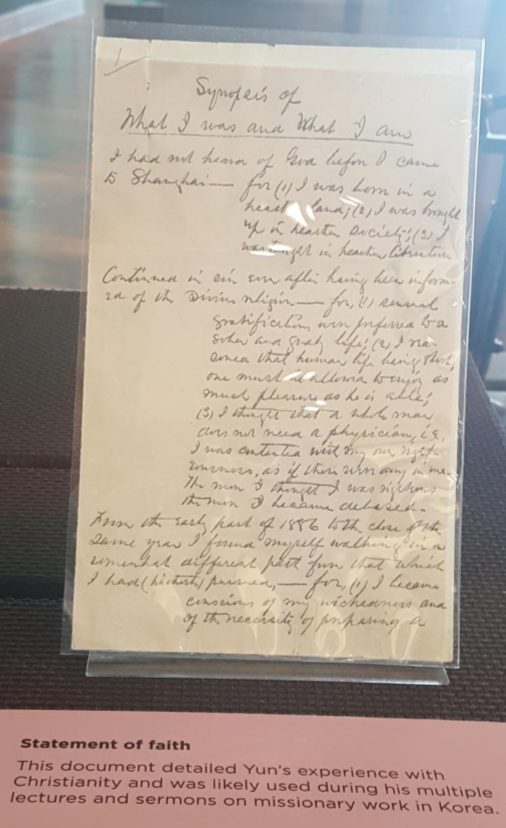 1
Synopsis of
What I was and What I am
I had not heard of God before I came
to Shanghai — for (1) I was born in a
heathen land; (2) I was brought
up in heathen society; (3) I
was taught in heathen literature
Continued in sin even after having been inform-
ed of the Divine religion — for, (1) sensual
gratification were preferred to a
sober and godly life; (2) I rea-
soned that human life being short,
one must be allowed to enjoy as
much pleasure as he is able;
(3) I thought that a whole man
does not need a physician, i.e.
I was contented with my own right-
eousness, as if there were any in me.
The more I thought I was righteous
the more I became debased.
From the early part of 1886 to the close of the
same year I found myself walking in a
somewhat different path from that which
I had (hitherto) pursued, — for, (1) I became
conscious of my wickedness and
of the necessity of preparing a
Statement of faith
This document detailed Yun's experience with
Christianity and was likely used during his multiple
lectures and sermons on missionary work in Korea.